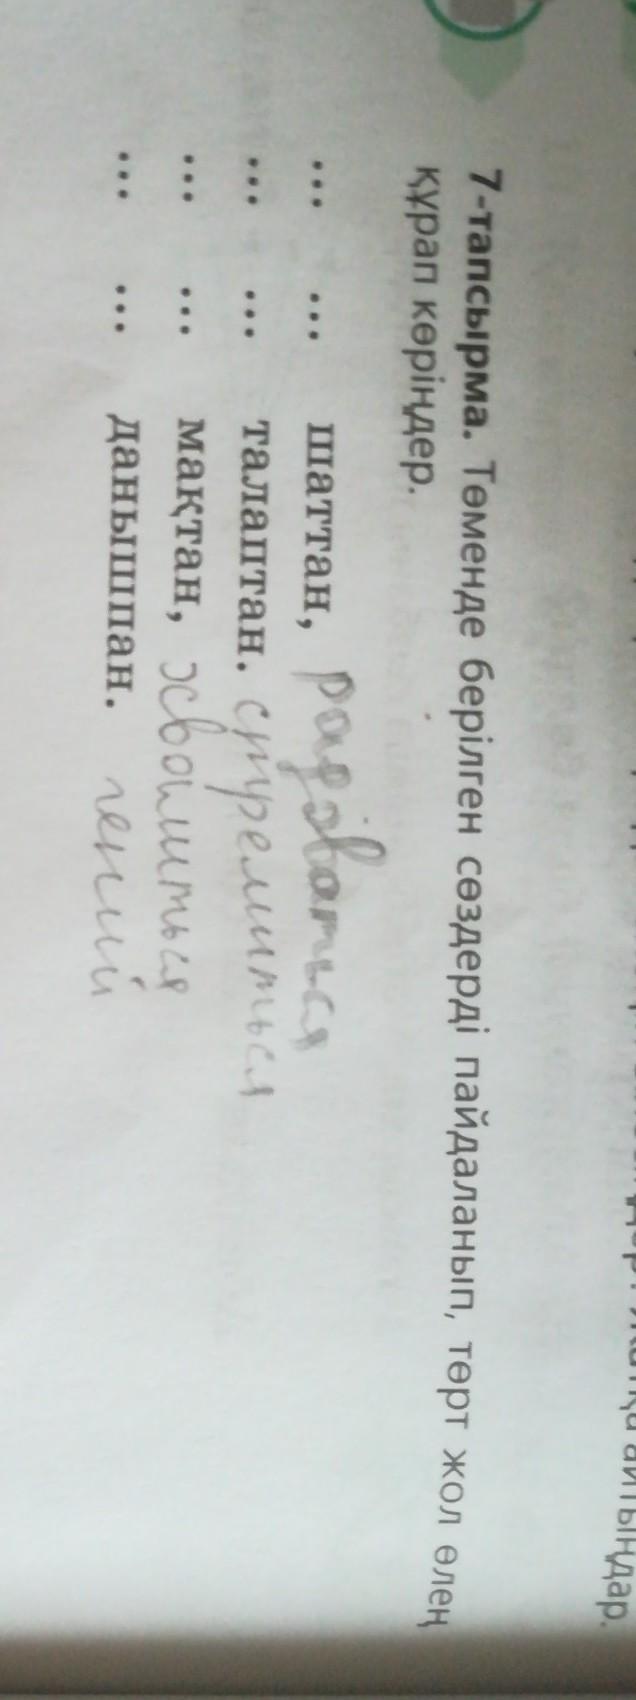 айтыңдар.
7-тапсырма. Төменде берілген сөздерді пайдаланып, төрт жол өлең
құрап көріңдер.
... ... шаттан, радоваться
... ... талаптан. стремиться
... ... мақтан, хвалиться
... ... данышпан. гений